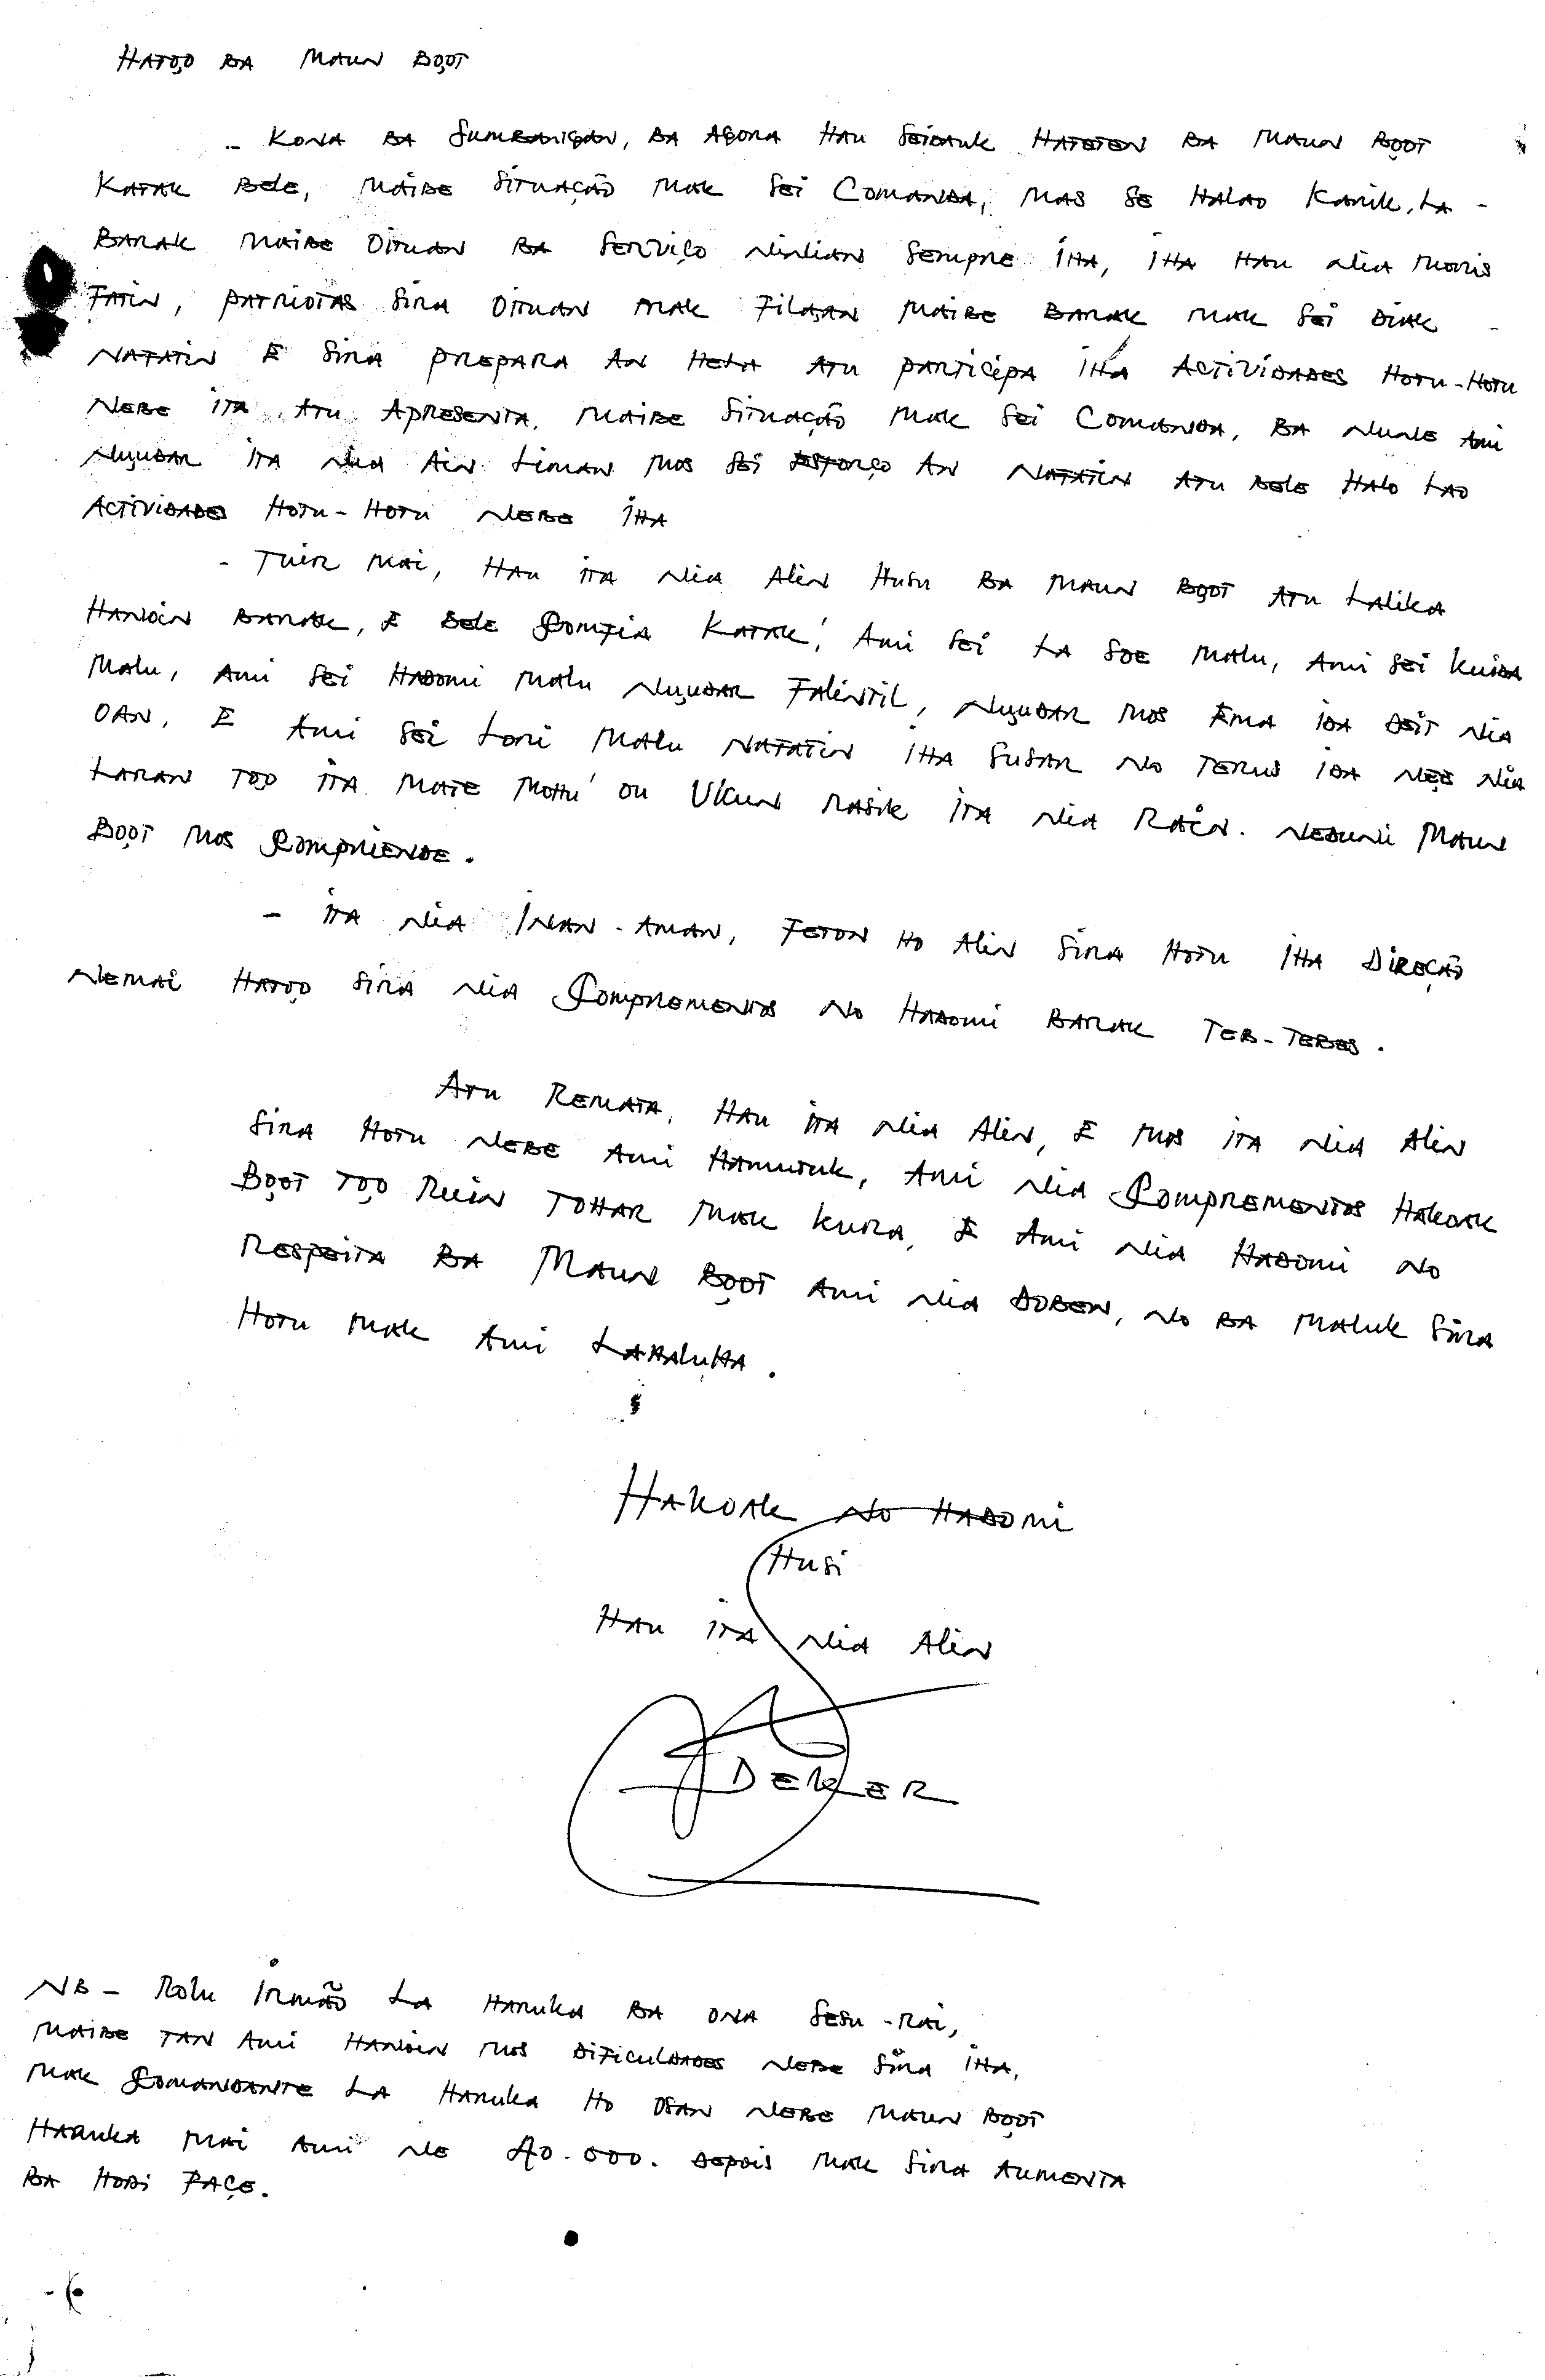 HATOO BA MAUN BOOT
- KONA BA SUMBANIGAN, BA AGORA HAU SEIDAUK HATETEN BA MAUN BOOT
KATAK BELE, MAIBE SITUAÇÃO MAK SEI COMANDA, MAS SE HALAO KARIK, LA -
BARAK MAIBE OITUAN BA SERVIÇO NINIAN SEMPRE IHA, IHA HAU NIA MORIS
FATIN, PATRIOTAS SIRA OITUAN MAK FILAAN MAIBE BARAK MAK SEI DIAK -
NAFATIN E SIRA PREPARA AN HELA ATU PARTICIPA IHA ACTIVIDADES HOTU-HOTU
NEBE ITA ATU APRESENTA. MAIBE SITUAÇÃO MAK SEI COMANDA, BA NUNE AMI
NUUDAR ITA NIA AIN LIMAN MOS SEI ESFORÇO AN NAFATIN ATU BELE HALO LAO
ACTIVIDADES HOTU-HOTU NEBE IHA
- TUIR MAI, HAU ITA NIA ALIN HUSU BA MAUN BOOT ATU LALIKA
HANOIN BARAK, E BELE CONFIA KATAK, AMI SEI LA SOE MALU, AMI SEI KUIDA
MALU, AMI SEI HADOMI MALU NUUDAR FALINTIL, NUUDAR MOS EMA IDA DEIT NIA
OAN, E AMI SEI LORI MALU NAFATIN IHA SUSAR NO TERUS IDA NEE NIA
LARAN TOO ITA MATE MOHU OU UKUN RASIK ITA NIA RAIN. NEDUNI MAUN
BOOT MOS COMPRIENDE.
- ITA NIA INAN-AMAN, FETON HO ALIN SIRA HOTU IHA DIREÇÃO
NEMAI HATOO SIRA NIA COMPREMENTOS NO HADOMI BARAK TEB-TEBES.
ATU REMATA, HAU ITA NIA ALIN, E MOS ITA NIA ALIN
SIRA HOTU NEBE AMI HAMUTUK, AMI NIA COMPREMENTOS HAKOAK
BOOT TOO RUIN TOHAR MAK KURA, E AMI NIA HADOMI NO
RESPEITA BA MAUN BOOT AMI NIA DOBEN, NO BA MALUK SIRA
HOTU MAK AMI LAHALUHA.
HAKOAK NO HADOMI
HUSI
HAU ITA NIA ALIN
DEKER
NB - ROLU IRMÃO LA HARUKA BA ONA SESU-RAI,
MAIBE TAN AMI HANOIN MOS DIFICULDADES NEBE SIRA IHA,
MAK COMANDANTE LA HARUKA HO OSAN NEBE MAUN BOOT
HARUKA MAI AMI NE 40.000. DEPOIS MAK SIRA AUMENTA
BA HODI FAÇE.